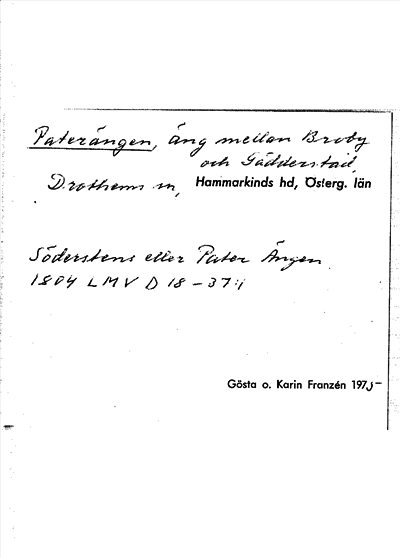 Paterängen, äng mellan Broby
och Gädderstad,
Drothems sn, Hammarkinds hd, Österg. län
Söderstens eller Pater Ängen
1804 LMV D 18-37:1
Gösta o. Karin Franzén 1975